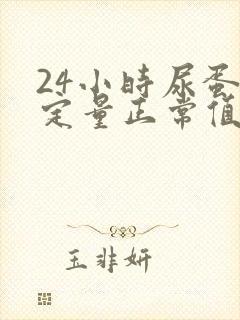 24小時尿蛋
定量正常值
玉非妍